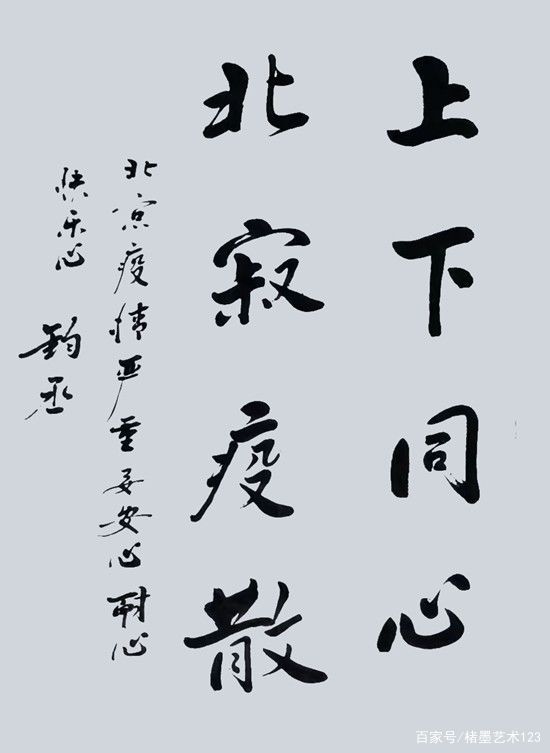 上下同心
北寂疫散
北京疫情严重要安心耐心
快乐心
钧丞
百家号/楮墨艺术123